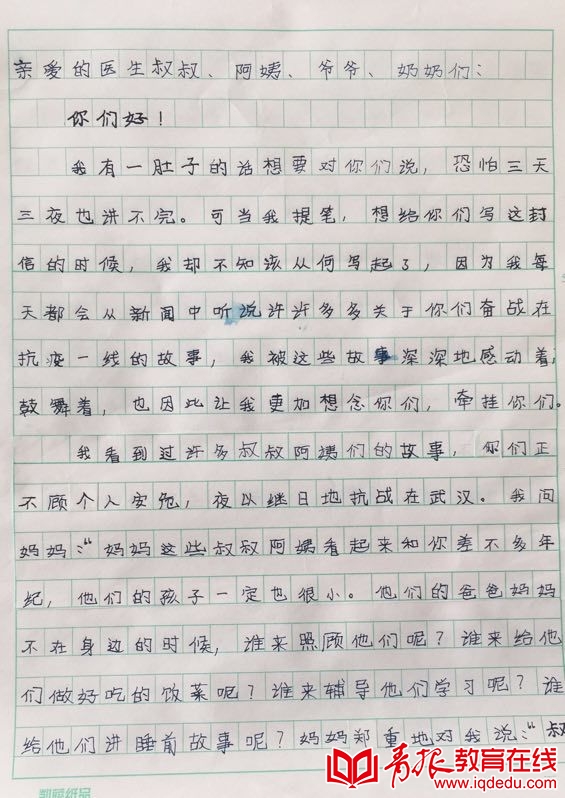 亲爱的医生叔叔、阿姨、爷爷、奶奶们:
你们好!
我有一肚子的话想要对你们说,恐怕三天
三夜也讲不完。可当我提笔,想给你们写这封
信的时候,我却不知该从何写起了,因为我每
天都会从新闻中听说许许多多关于你们奋战在
抗疫一线的故事,我被这些故事深深地感动着,
鼓舞着,也因此让我更加想念你们,牵挂你们。
我看到过许多叔叔阿姨们的故事,你们正
不顾个人安危,夜以继日地抗战在武汉。我问
妈妈:“妈妈这些叔叔阿姨看起来和你差不多年
纪,他们的孩子一定也很小。他们的爸爸妈妈
不在身边的时候,谁来照顾他们呢?谁来给他
们做好吃的饭菜呢?谁来辅导他们学习呢?谁
给他们讲睡前故事呢?妈妈郑重地对我说:“叔
青报教育在线
www.iqdedu.com